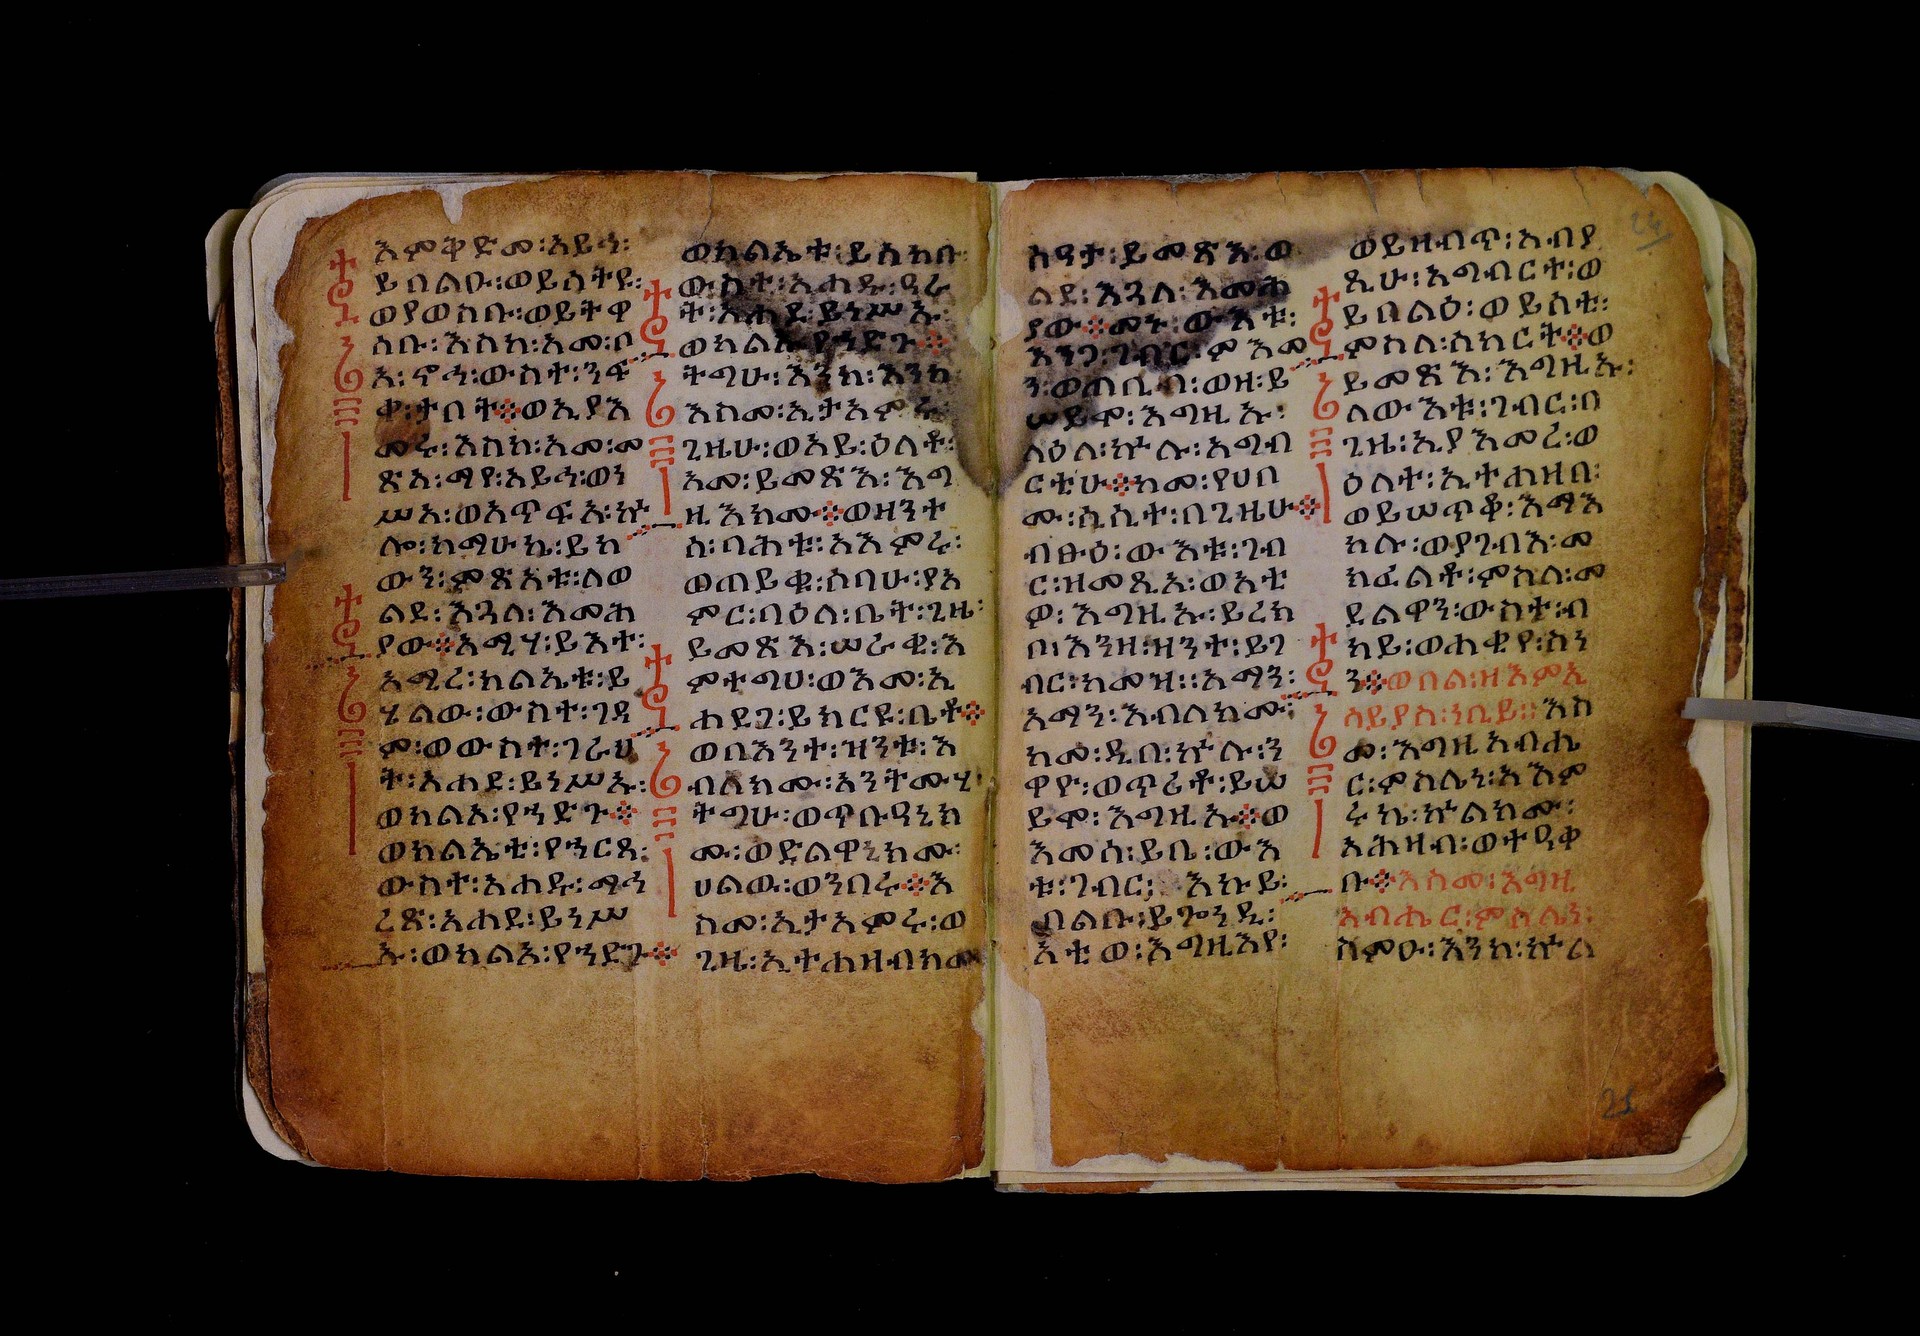 እምቅድመ፡አይኅ፡
ይበልዑ፡ወይሰትዩ፡
ወያወስቡ፡ወይትዋ
ሰቡ፡እስከ፡አመ፡ቦ
አ፡ኖኅ፡ውስተ፡ንፍ
ቀ፡ታቦት፨ወኢያእ
መሩ፡እስከ፡አመ፡መ
ጽአ፡ማየ፡አይኅ፡ወነ
ሥአ፡ወአጥፍአ፡ኵ
ሎ፡ከማሁኬ፡ይከ
ውን፡ምጽአቱ፡ለወ
ልደ፡እጓለ፡እመሕ
ያው፨አሜሃ፡ይእተ፡
አሚረ፡ክልኤቱ፡ይ
ሄልው፡ውስተ፡ገዳ
ም፡ወውስተ፡ገራህ
ት፡አሐደ፡ይነሥኡ፡
ወካልአ፡የኀድጉ፨
ወክልኤቲ፡የኀርጻ፡
ውስተ፡አሐዱ፡ማኅ
ረጽ፡አሐደ፡ይነሥ
ኡ፡ወካልአ፡የኀድጉ፨
ወክልኤቱ፡ይሰክቡ፡
ውስተ፡አሐዱ፡ዓራ
ት፡አሐደ፡ይነሥኡ፡
ወካልአ፡የኀድጉ፨
ትግሁ፡እንከ፡እንከ
እስመ፡ኢታአምሩ፡
ጊዜሁ፡ወአይ፡ዕለቶ፡
አመ፡ይመጽእ፡እግ
ዚእክሙ፨ወዘንተ
ሰ፡ባሕቱ፡አእምሩ፡
ወጠይቁ፡ሶበሁ፡የአ
ምር፡በዕለ፡ቤት፡ጊዜ፡
ይመጽእ፡ሠራቂ፡እ
ምተግሀ፡ወእመ፡ኢ
ሐደገ፡ይክርዩ፡ቤቶ፨
ወበእንተ፡ዝንቱ፡እ
ብለክሙ፡አንትሙሂ፡
ትግሁ፡ወጥቡዓኒክ
ሙ፡ወድልዋኒክሙ፡
ሀልዉ፡ወንበሩ፨እ
ስመ፡ኢታአምሩ፡ወ
ጊዜ፡ኢተሐዘብክሙ
ሰዓታ፡ይመጽእ፡ወ
ልደ፡እጓለ፡እመሕ
ያው፨መኑ፡ውእቱ፡
እንጋ፡ገብር፡ምእመ
ን፡ወጠቢብ፡ወዘ፡ይ
ሠይሞ፡እግዚኡ፡
ላዕለ፡ኵሉ፡አግብ
ርቲሁ፨ከመ፡የሀቦ
ሙ፡ሲሲት፡በጊዜሁ፨
ብፁዕ፡ውእቱ፡ገብ
ር፡ዝመጺኦ፡ወአቲ
ዎ፡እግዚኡ፡ይረክ
ቦ፡እንዘ፡ዝንተ፡ይገ
ብር፡ከመዝ፡፡አማን፡
አማን፡እብለክሙ፡
ከመ፡ዲበ፡ኵሉ፡ን
ዋዮ፡ወጥሪቶ፡ይሠ
ይሞ፡እግዚኡ፨ወ
እመሰ፡ይቤ፡ውእ
ቱ፡ገብር፡እኩይ፡
በልቡ፡ይጐነዲ፡
አቲዎ፡እግዚእየ፡
ወይዘብጥ፡አብያ
ጺሁ፡አግብርተ፡ወ
ይበልዕ፡ወይሰቲ፡
ምስለ፡ሰከርት፨ወ
ይመጽእ፡እግዚኡ፡
ለውእቱ፡ገብር፡በ
ጊዜ፡ኢያእመረ፡ወ
ዕለተ፡ኢተሐዘበ፡
ወይሠጥቆ፡እማእ
ከሉ፡ወያገብእ፡መ
ክፈልቶ፡ምስለ፡መ
ደልዋን፡ውስተ፡ብ
ካይ፡ወሐቂየ፡ስን
ን፨ወበል፡ዘእምኢ
ሳይያስ፡ነቢይ፡፡እስ
መ፡እግዚአብሔ
ር፡ምስሌነ፡አእም
ሩኬ፡ኵልክሙ፡
አሕዛብ፡ወተዓቀ
ቡ፨እስመ፡እግዚ
አብሔር፡ምስሌነ፡
ስምዑ፡እንከ፡ኵል
24
25